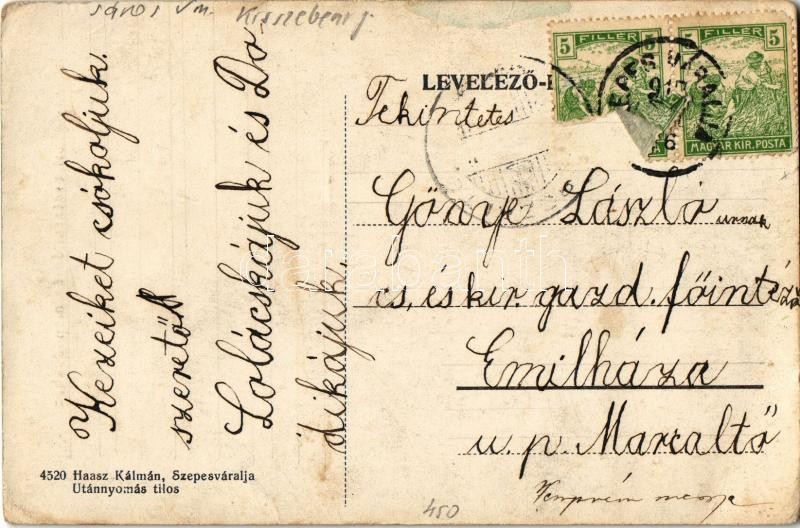 Sáros vm. Kisszeben
LEVELEZŐ-
5 FILLÉR 5
5 FILLÉR 5
MAGYAR KIR. POSTA
Tekintetes
Gönye László urnak
cs. és kir gazd. főintéző
Emilháza
u. p. Marcaltő
Veszprém megye
Kezeiket csókoljuk.
szeretők
Lolácskájuk és Do
dikájuk.
4520 Haasz Kálmán, Szepesváralja
Utánnyomás tilos
450
darabanth